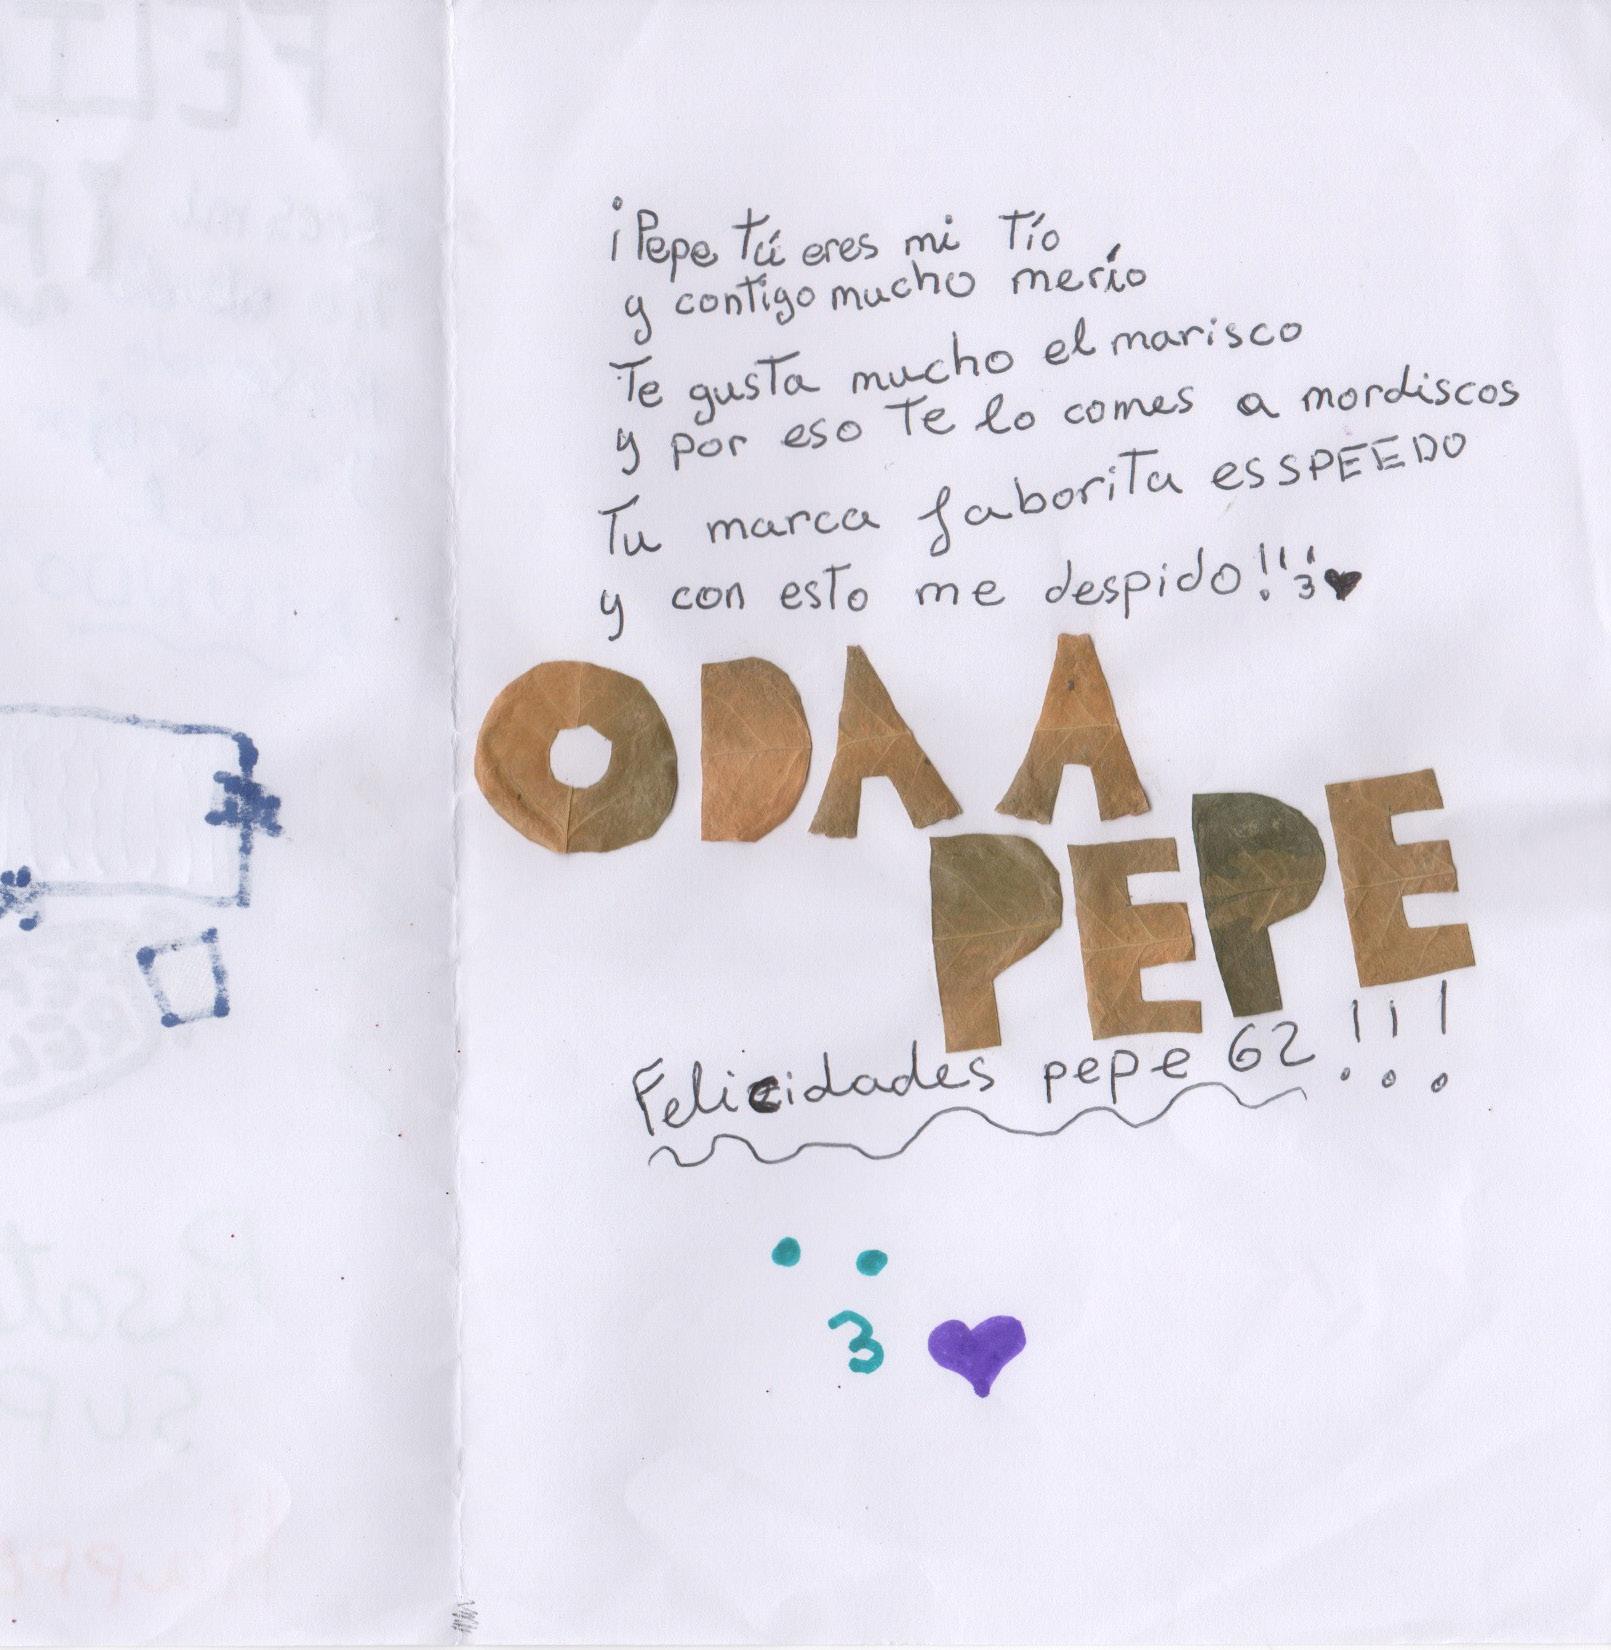 ¡Pepe tú eres mi tío
y contigo mucho merío
Te gusta mucho el marisco
y por eso te lo comes a mordiscos
Tu marca faborita es SPEEDO
y con esto me despido!¡¡ :3♥
ODA A
PEPE
Felicidades pepe 62!!!
: 3 ♥